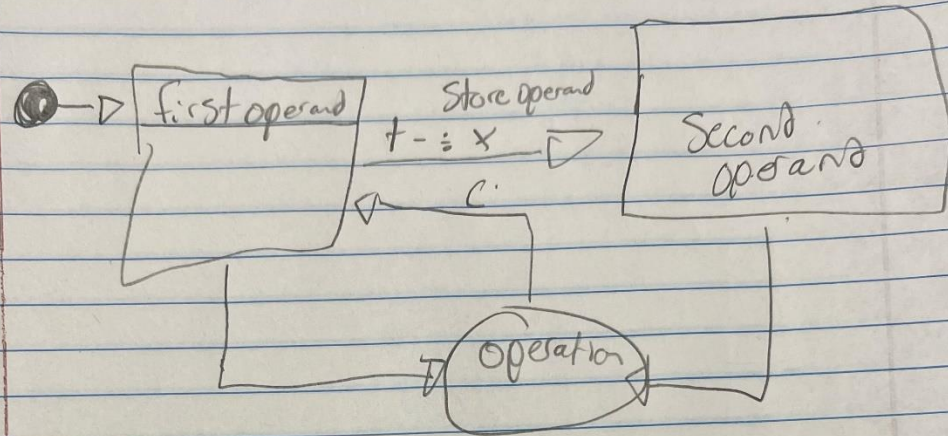 first operand
Store operand
+ - ÷ x
C
Second
operand
Operation